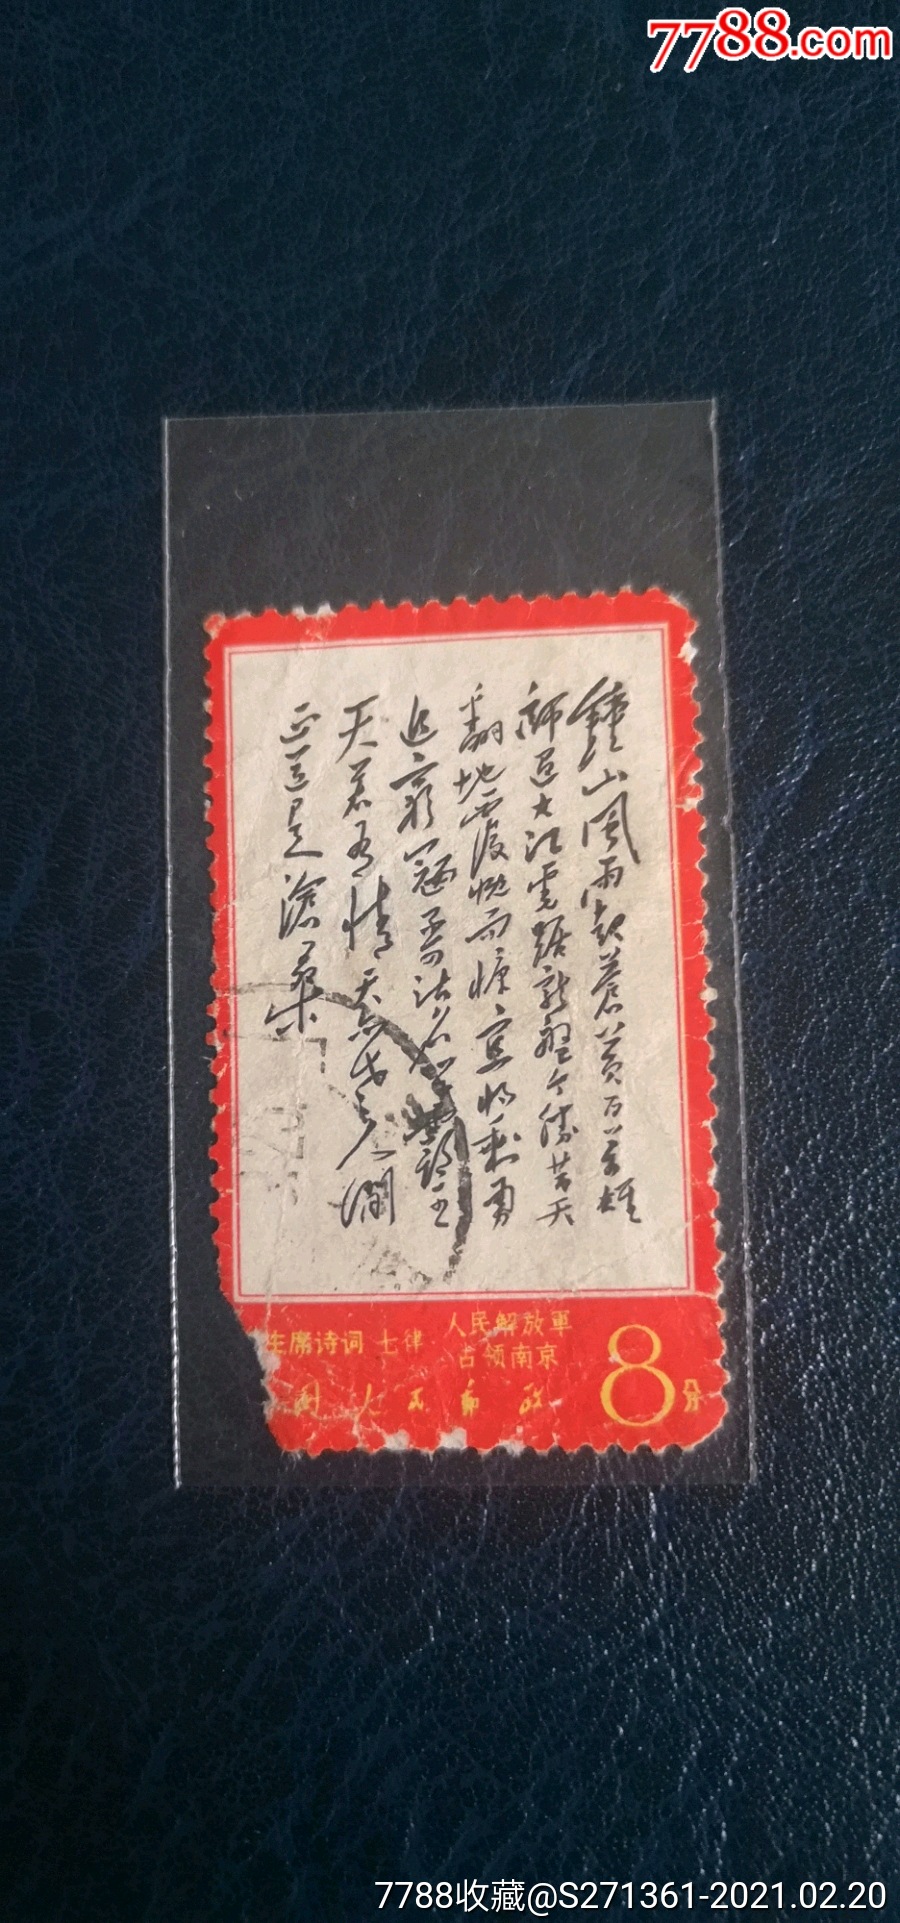 7788.com
鍾山風雨起蒼黃百萬雄
師過大江虎踞龍盤今勝昔天
翻地覆慨而慷宜將剩勇
追窮寇不可沽名學霸王
天若有情天亦老人間
正道是滄桑
主席诗词 七律 人民解放軍
占领南京
国人民郵政
8分
7788收藏@S271361-2021.02.20